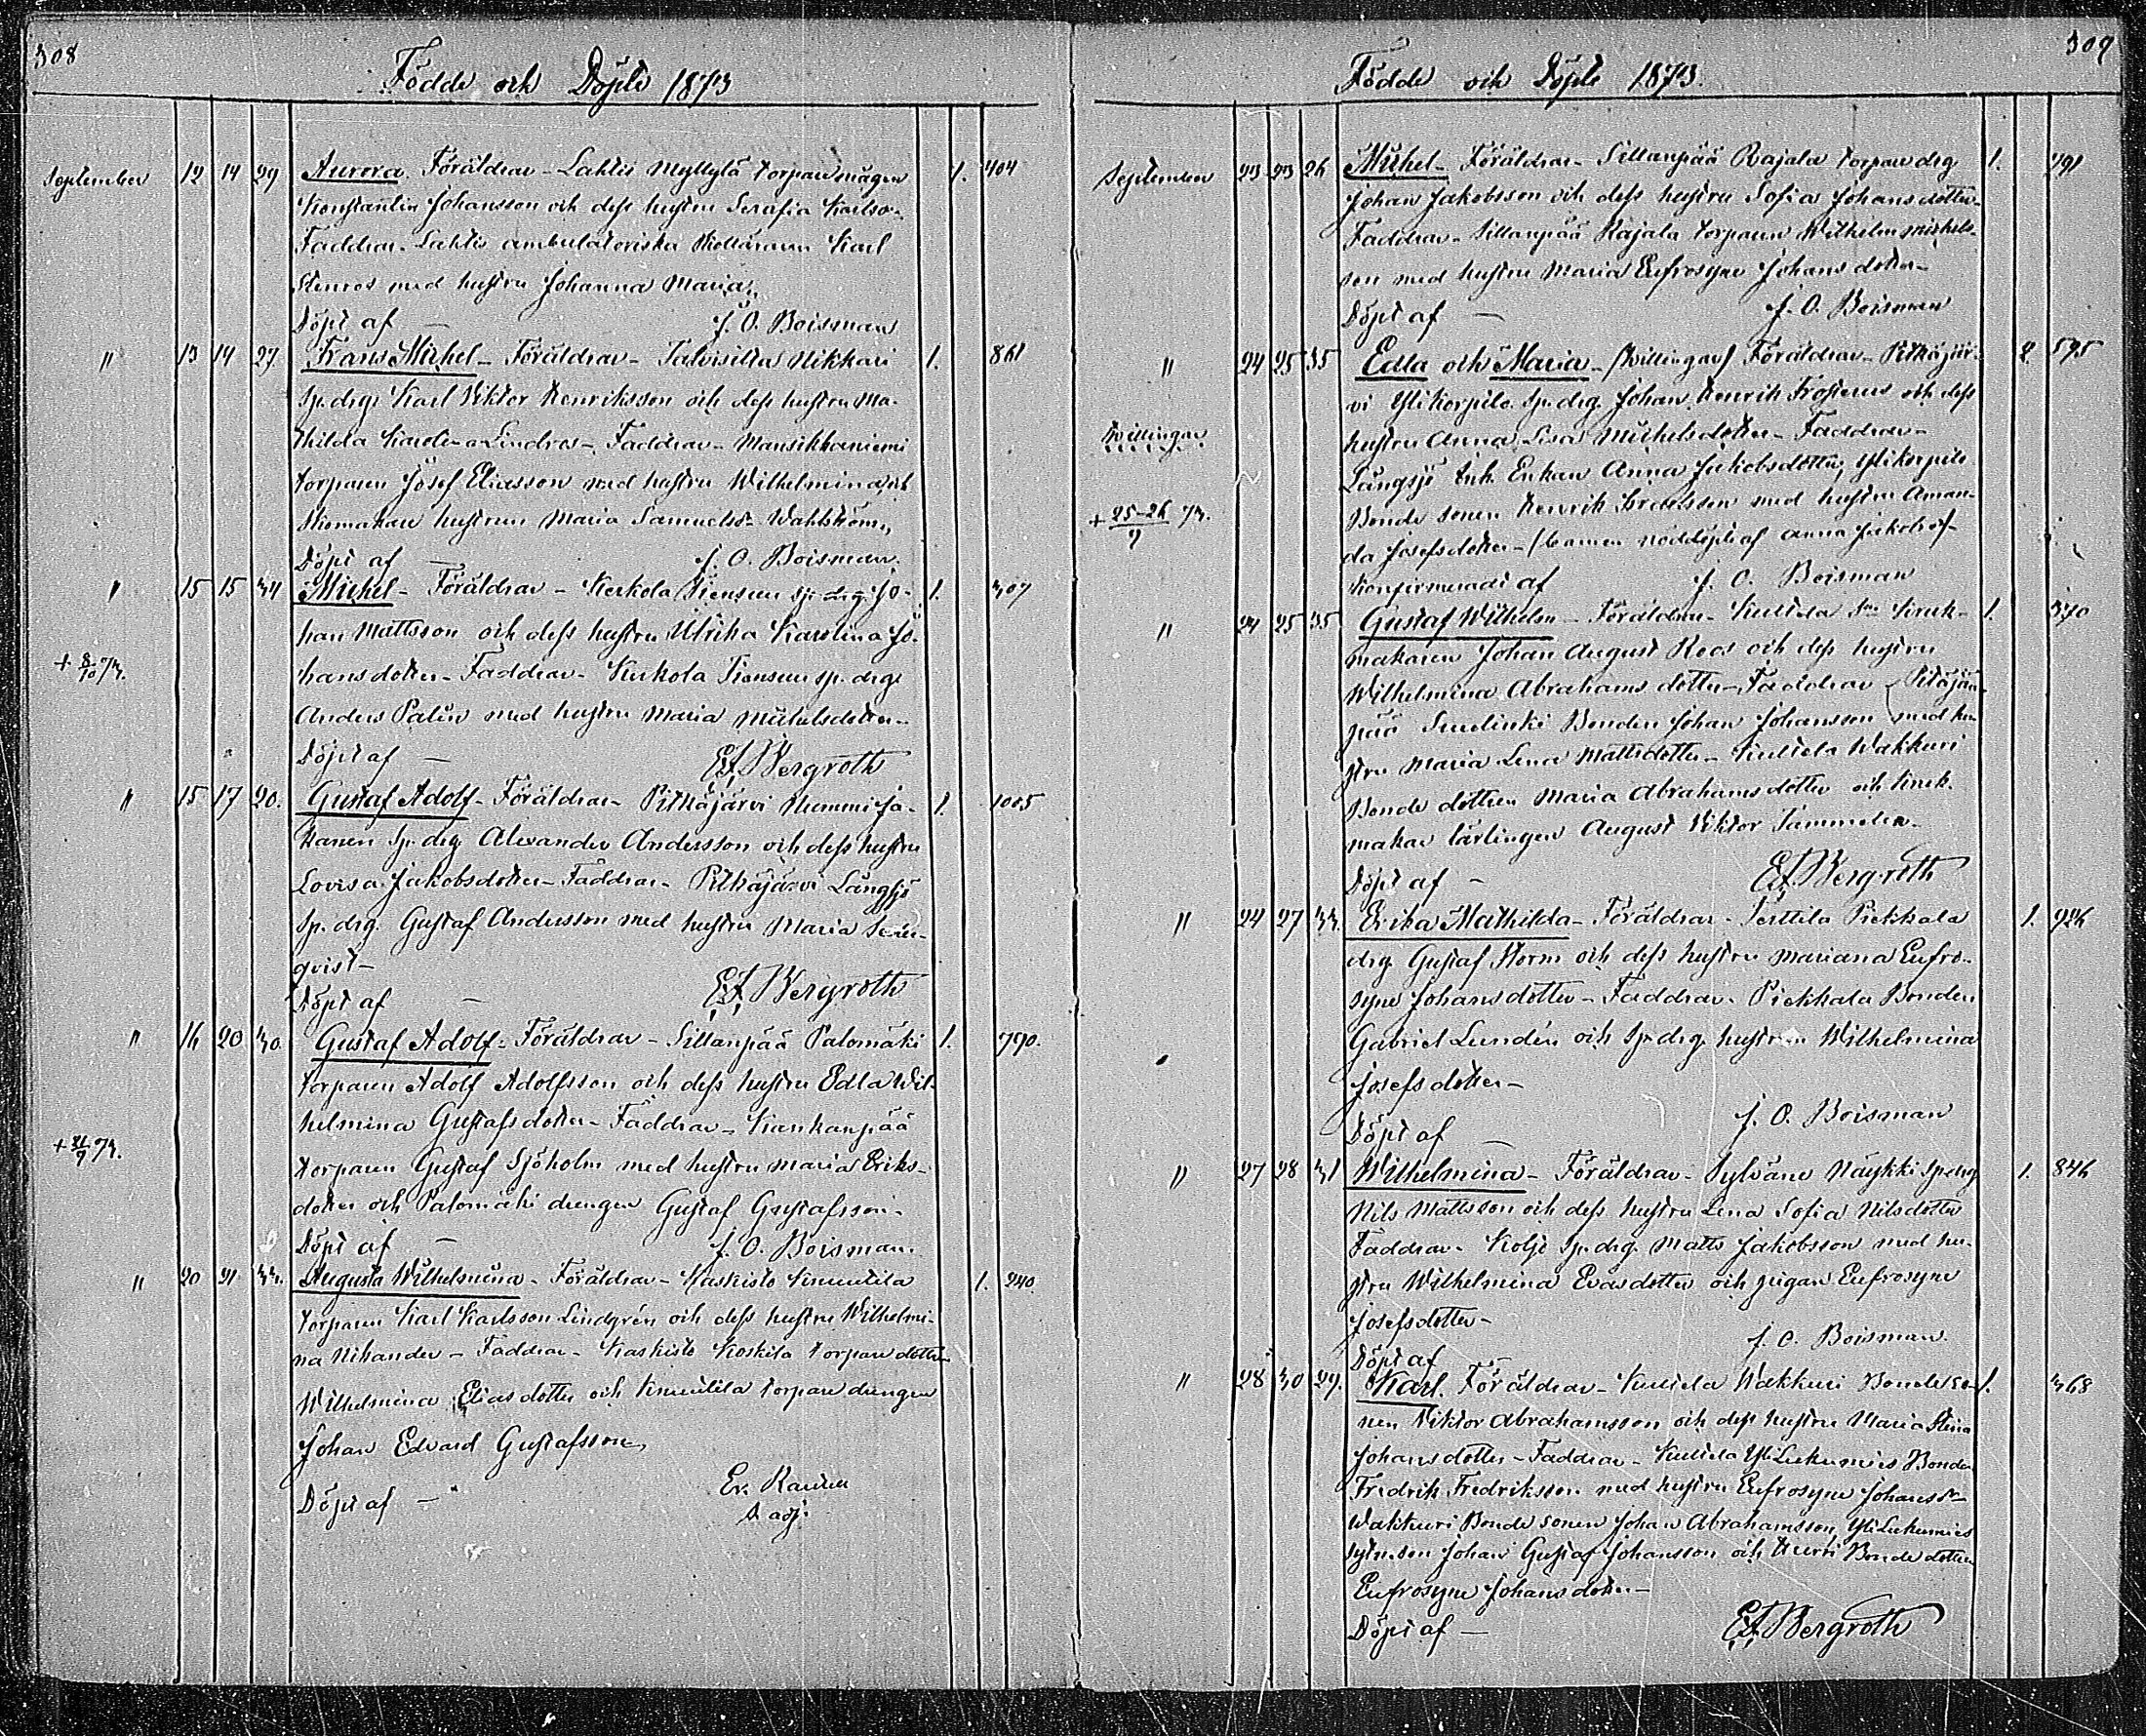 308
Födde och Döpte 1873
September 12 14 29 Aurora. Föräldrar - Lahtis Myllylä torpare mågen 1. 404
Konstantin Johansson och dess hustru Serafia Karlsd.
Faddrar - Lahtis ambulatoriska Skolläraren Karl
Stenros med hustru Johanna Maria.
Döpt af - J. O. Boisman
" 13 14 27 Frans Michel - Föräldrar - Talvisilta Nikkari 1. 861
sp. drg. Karl Viktor Henriksson och dess hustru Ma-
thilda Karolina Lindros - Faddrar - Mansikkaniemi
torparen Josef Eliasson med hustru Wilhelmina och
Skomakare hustrun Maria Samuelsd. Wahlström.
Döpt af - J. O. Boisman.
" 15 15 34 Michel - Föräldrar - Kerkola sp. drg. Jo- 1. 307
han Mattsson och dess hustru Ulrika Karolina Jo-
+ 8/10 73. hansdotter - Faddrar - Kerkola sp. drg.
Anders Palin med hustru Maria Michelsdotter -
Döpt af - E. F. Bergroth
" 15 17 20. Gustaf Adolf - Föräldrar - Pitkäjärvi Nummi Ja- 1. 1005
kanen Sp. drg Alexander Andersson och dess hustru
Lovisa Jakobsdotter - Faddrar - Pitkäjärvi Långsjö
sp. drg. Gustaf Andersson med hustru Maria
qvist -
Döpt af - E. F. Bergroth
" 16 20 30. Gustaf Adolf - Föräldrar - Sillanpää Palomäki 1. 790.
torparen Adolf Adolfsson och dess hustru Edla Wil-
helmina Gustafsdotter - Faddrar - Kankanpää
+ 21/9 73. torparen Gustaf Sjöholm med hustru Maria Eriks-
dotter och Palomäki drengen Gustaf Gustafsson.
Döpt af - J. O. Boisman.
" 20 21 33. Augusta Wilhelmina - Föräldrar - Kaskisto 1. 240.
torparen Karl Karlsson Lindgrén och dess hustru Wilhelmi-
na Nikander - Faddrar - Kaskisto Koskila torpare dottern
Wilhelmina Eliasdotter och torpare drengen
Johan Edvard Gustafsson,
Döpt af - Ev. Rauten
v. adj.
309
Födde och Döpte 1873.
September 23 23 26 Michel - Föräldrar - Sillanpää Rajala torpare drg 1. 791
Johan Jakobsson och dess hustru Sofia Johansdotter -
Faddrar - Sillanpää Rajala torparen Wilhelm Michels-
son med hustru Maria Eufrosyne Johansdotter -
Döpt af - J. O. Boisman
" 24 25 35 Edla och Maria - (tvillingar) Föräldrar - Pitkäjär- 2. 595
vi Ylikorpilo Sp. drg. Johan Henrik Frosterus och dess
tvillingar hustru Anna Lisa Michelsdotter - Faddrar -
Långsjö Inh. Enkan Anna Jakobsdotter, Ylikorpilo
+ 25-26/9 73. Bonde sonen Henrik med hustru Aman-
da Josefsdotter - (barnen nöddöpte af Anna Jakobsd)-
Konfirmeradt af J. O. Boisman
" 24 25 35 Gustaf Wilhelm - Föräldrar - Kuttila Kruk- 1. 370
makaren Johan August Roos och dess hustru
Wilhelmina Abrahams dotter - Faddrar
pää Bonden Johan Johansson med hu-
stru Maria Lena Mattsdotter - Kuttila Wakkuri
Bonde dottren Maria Abrahamsdotter och Kruk-
makar lärlingen August Viktor Tammelin -
Döpt af - E. F. Bergroth
" 24 27 33. Erika Mathilda - Föräldrar - Terttilä Piekkala 1. 926
drg Gustaf Storm och dess hustru Mariana Eufro-
syne Johansdotter - Faddrar - Piekkala Bonden
Gabriel Lundén och Sp. drg. hustrun Wilhelmina
Josefsdotter -
Döpt af - J. O. Boisman
" 27 28 31 Wilhelmina - Föräldrar - Sylväne Näykki Sp. drg 1. 846
Nils Mattsson och dess hustru Lena Sofia Nilsdotter
Faddrar - Kolje Sp. drg. Matts Jakobsson med hu-
stru Wilhelmina Evasdotter och pigan Eufrosyne
Josefsdotter -
Döpt af - J. O. Boisman.
" 28 30 29. Karl. Föräldrar - Kuttila Wakkuri Bonde so- 1. 368
nen Viktor Abrahamsson och dess hustru Maria Stina
Johansdotter - Faddrar - Kuttila Yli Liekumies Bonde
Fredrik Fredriksson med hustru Eufrosyne Johansdr -
Wakkuri Bonde sonen Johan Abrahamsson, Yli Liekumies
Johan Gustaf Johansson och Bonde dottren
Eufrosyne Johansdotter -
Döpt af - E. F. Bergroth